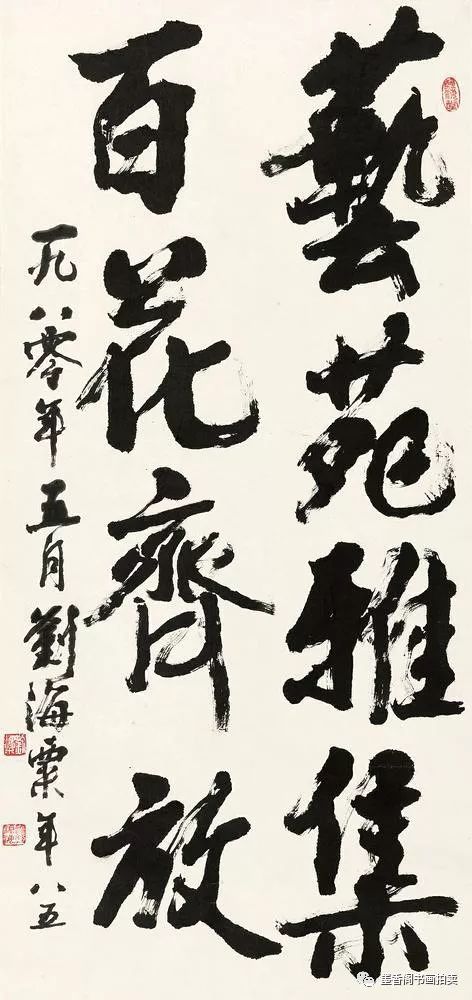 藝苑雅集
百花齊放
一九八零年五月劉海粟年八五
墨香阁书画拍卖